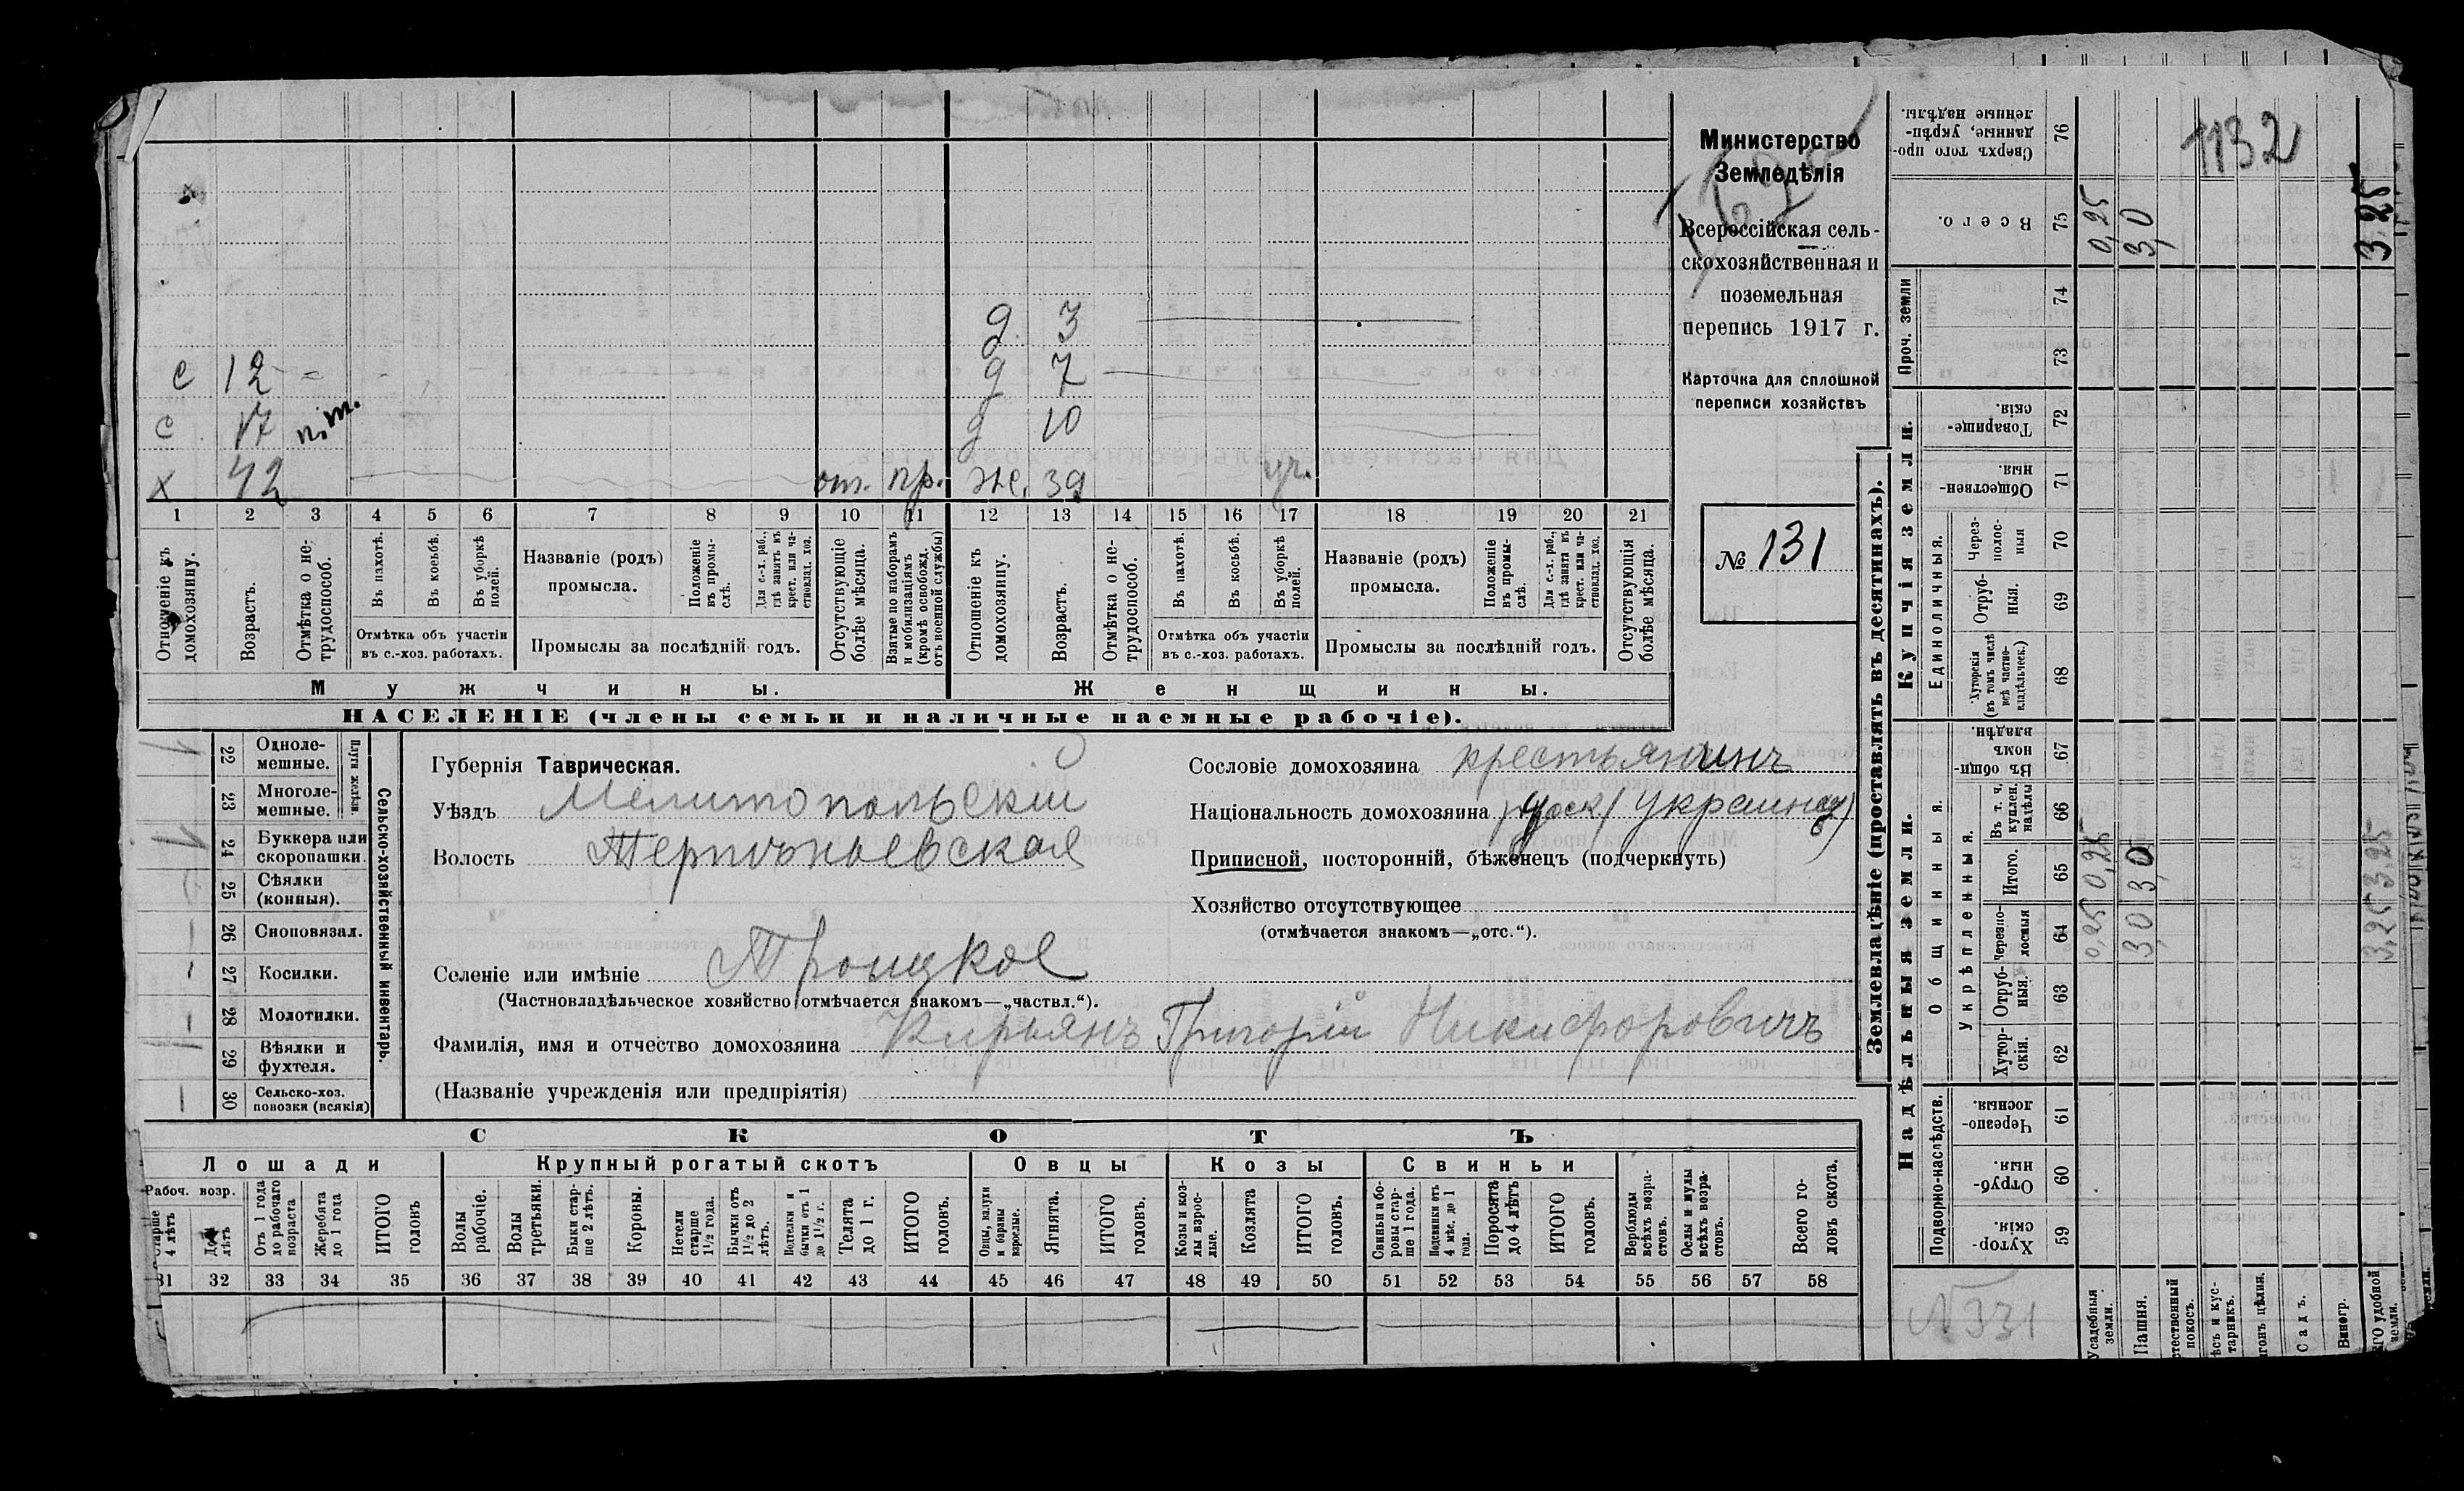 Министерство
Земледѣлія
Всероссійская сель-
скохозяйственная и
поземельная
перепись 1917 г.
Карточка для сплошной
переписи хозяйствъ
№ 131
1132
д 3
с 12 д 7
с 17 п.т. д 10
х 42 от. пр. же. 39 уг.
1 2 3 4 5 6 7 8 9 10 11 12 13 14 15 16 17 18 19 20 21
Отношеніе къ домохозяину.
Возрастъ.
Отмѣтка о не-
трудоспособ.
Въ пахотѣ.
Въ косьбѣ.
Въ уборкѣ полей.
Отмѣтка объ участіи
въ с.-хоз. работахъ.
Названіе (родъ)
промысла.
Положеніе въ промы-
слѣ.
Для с.-х. раб., гдѣ занятъ въ крест. или ча-
стновлад. хоз.
Промыслы за послѣдній годъ.
Отсутствующіе болѣе мѣсяца.
Взятые по наборамъ и мобилизаціямъ (кромѣ освобожд. отъ военной службы)
Отношеніе къ домохозяину.
Возрастъ.
Отмѣтка о не-
трудоспособ.
Въ пахотѣ.
Въ косьбѣ.
Въ уборкѣ полей.
Отмѣтка объ участіи
въ с.-хоз. работахъ.
Названіе (родъ)
промысла.
Положеніе въ промы-
слѣ.
Для с.-х. раб., гдѣ занятъ въ крест. или ча-
стновлад. хоз.
Промыслы за послѣдній годъ.
Отсутствующія болѣе мѣсяца.
Мужчины.
Женщины.
НАСЕЛЕНІЕ (члены семьи и наличные наемные рабочіе).
Сельско-хозяйственный инвентарь.
Плуги желѣзн.
22 Одноле-
мешные.
23 Многоле-
мешные.
24 Буккера или
скоропашки.
25 Сѣялки
(конныя).
26 Сноповязал.
27 Косилки.
28 Молотилки.
29 Вѣялки и
фухтеля.
30 Сельско-хоз.
повозки (всякія)
Губернія Таврическая.
Уѣздъ Мелитопольскій
Волость Терпѣньевская
Селеніе или имѣніе Троицкое
(Частновладѣльческое хозяйство отмѣчается знакомъ—„частвл.“).
Сословіе домохозяина крестьянинъ
Національность домохозяина русск/украинец)
Приписной, посторонній, бѣженецъ (подчеркнуть)
Хозяйство отсутствующее
(отмѣчается знакомъ—„отс.“).
Фамилія, имя и отчество домохозяина Кирьянъ Григорій Никифоровичъ
(Названіе учрежденія или предпріятія)
СКОТЪ
Лошади
Рабоч. возр.
Старше
4 лѣтъ
До 4
лѣтъ
Отъ 1 года
до рабочаго
возраста
Жеребята
до 1 года
ИТОГО
головъ
Крупный рогатый скотъ
Волы
рабочіе.
Волы
третьяки.
Быки стар-
ше 2 лѣтъ.
Коровы.
Нетели
старше
1½ года.
Бычки отъ
1½ до 2
лѣтъ.
Подтелки и
бычки отъ 1
до 1½ г.
Телята
до 1 г.
ИТОГО
головъ.
Овцы
Овцы, валухи
и бараны
взрослые.
Ягнята.
ИТОГО
головъ.
Козы
Козы и коз-
лы взрос-
лые.
Козлята
ИТОГО
головъ.
Свиньи
Свиньи и бо-
ровы стар-
ше 1 года.
Подсвинки отъ
4 мѣс. до 1
года.
Поросята
до 4 лѣтъ
ИТОГО
головъ.
Верблюды
всѣхъ возра-
стовъ.
Ослы и мулы
всѣхъ возра-
стовъ.
Всего го-
ловъ скота.
31 32 33 34 35 36 37 38 39 40 41 42 43 44 45 46 47 48 49 50 51 52 53 54 55 56 57 58
Землевладѣніе (проставлять въ десятинахъ).
Купчія земли.
Надѣльныя земли.
Сверхъ того про-
данные, укрѣп-
ленные надѣлы. 76
Всего. 75 0,25 3,0 3,25
Проч. земли
74
73
Товарище-
скія. 72
Обществен-
ныя 71
Единоличныя.
Через-
полос-
ныя 70
Отруб-
ныя. 69
Хуторскія
(въ томъ числѣ
всѣ частно-
владѣльческ.) 68
Общинныя.
Въ общи-
номъ
владѣн. 67
Укрѣпленныя.
Въ т. ч.
куплен.
надѣлы 66
Итого. 65 0,25 3,0 3,25
Черезпо-
лосныя 64 0,25 3,0 3,25
Отруб-
ныя. 63
Хутор-
скія. 62
Подворно-наслѣдств.
Черезпо-
лосныя. 61
Отруб-
ныя. 60
Хутор-
скія. 59
N 331
Усадебныя
земли.
Пашня.
покосъ.
тарникъ.
Садъ.
Виногр.
удобной
земли.